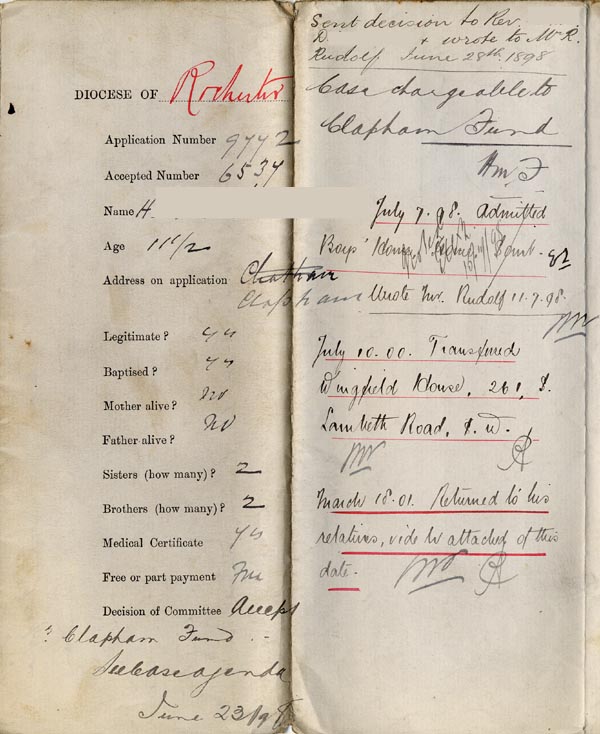 DIOCESE OF Rochester
Application Number 9772
Accepted Number 6537
Name H.
Age 11 1/2
Address on application Chatham
Clapham
Legitimate? yes
Baptised? yes
Mother alive? no
Father alive? no
Sisters (how many)? 2
Brothers (how many)? 2
Medical Certificate yes
Free or part payment Free
Decision of Committee Accept
Clapham Fund
See Case agenda
June 23/98
Sent decision to Rev.
D. + wrote to Mr R.
Rudolf June 28th 1898
Case chargeable to
Clapham Fund
July 7. 98. Admitted
Boys' Home
Wrote Mr. Rudolf 11.7.98.
July 10.00. Transferred
Wingfield House, 261, S.
Lambeth Road, S.W.
March 18.01. Returned to his
relatives, vide lr attached of this
date.